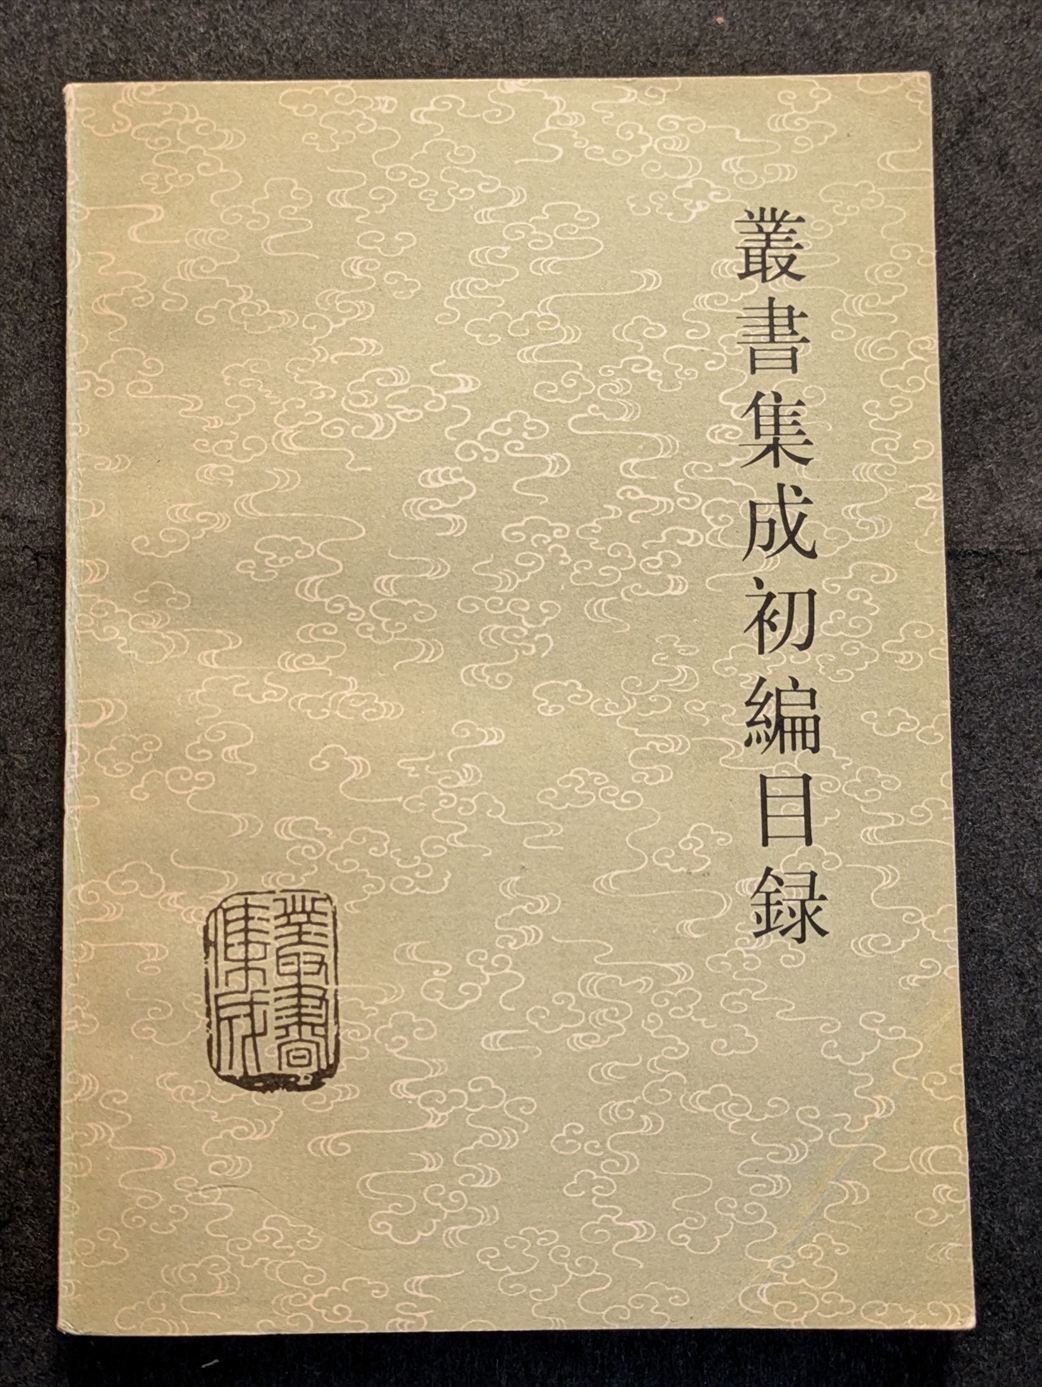 叢書集成初編目録
叢書
集成